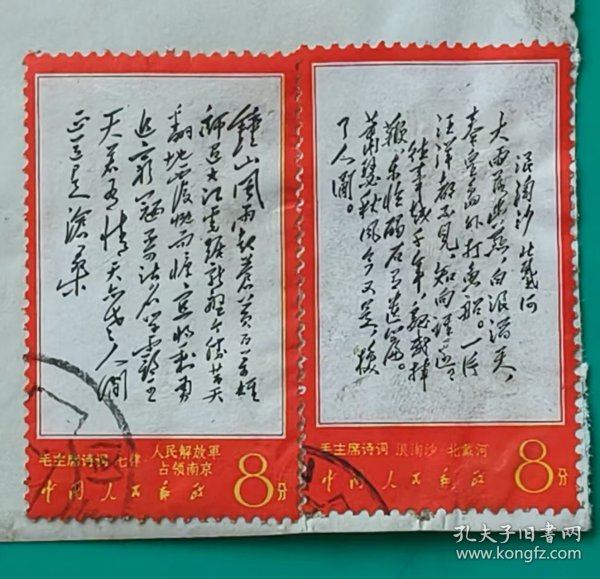 鐘山風雨起蒼黄百万雄
師过大江虎踞龙盤今勝昔天
翻地覆慨而慷宜將剩勇
追窮寇不可沽名學霸王
天若有情天亦老人间
正道是滄桑
毛主席诗词 七律 人民解放軍
占领南京
中国人民邮政 8分
浪淘沙 北戴河
大雨落幽燕,白浪滔天,
秦皇島外打魚船。一片
汪洋都不見,知向誰邊?
往事越千年,魏武揮
鞭,東臨碣石有遺篇。
蕭瑟秋風今又是,換
了人间。
毛主席诗词 浪淘沙 北戴河
中国人民邮政 8分
孔夫子旧书网
www.kongfz.com